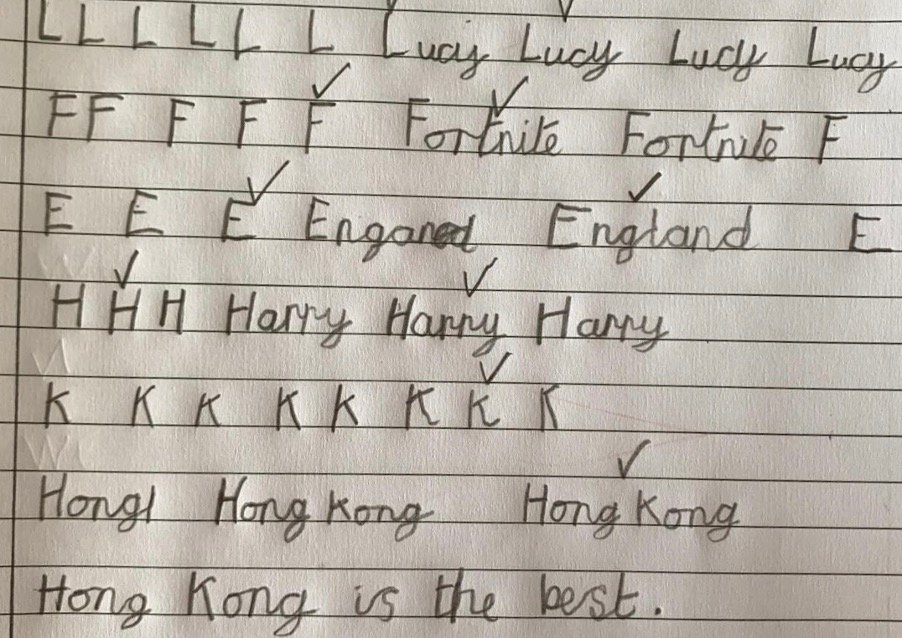 L L L L L L Lucy Lucy Lucy Lucy
F F F F F Fortnite Fortnite F
E E E Enganed England E
H H H Harry Harry Harry
K K K K K K K K
Hongl Hong Kong Hong Kong
Hong Kong is the best.